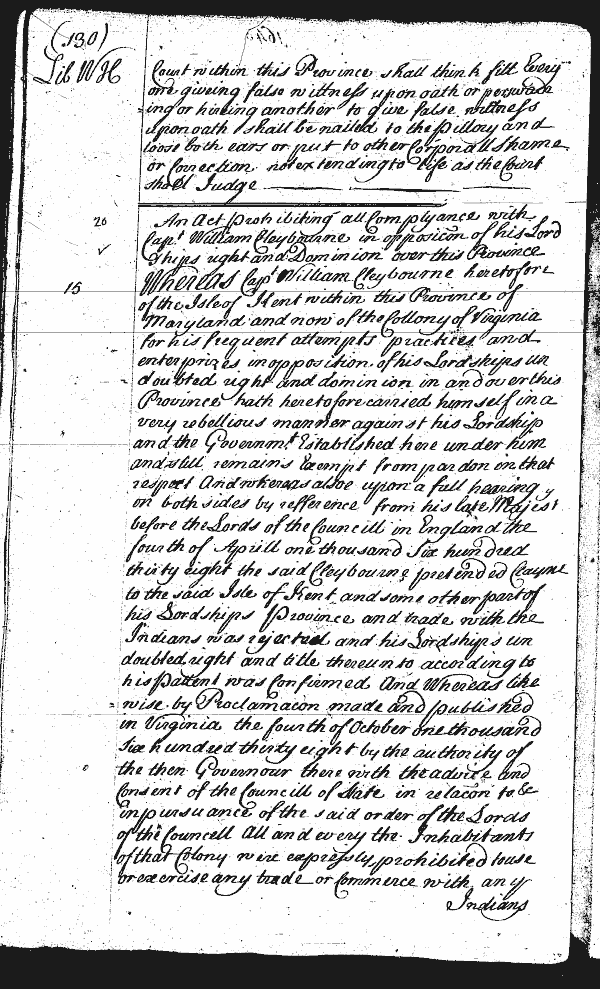 (130)
Lib WH
Court within this Province shall think fitt Every
one giveing false wittness upon oath or perswade
=ing or hireing another to give false wittness
upon oath shall be nailed to the Pillory and
loose both ears or put to other Corporall shame
or Correction not extending to life as the Court
shall Judge
20
An Act Prohibiting all Complyance with
Capt. William Cleybourne in opposicon of his Lord
ships right and Dominion over this Province
15
Whereas Capt William Cleybourne heretofore
of the Isle of Kent within this Province of
Maryland and now of the Collony of Virginia
for his frequent attempts practices and
enterprizes in opposition of his Lordships un
doubted right and dominion in and over this
Province hath heretofore carried himself in a
very rebellious manner against his Lordship
and the Governmt. Established here under him
and still remains Exempt from pardon in that
respect And whereas alsoe upon a full hearing
on both sides by refference from his late Majesty
before the Lords of the Councill in England the
fourth of Aprill one thousand Six hundred
thirty eight the said Cleybourne pretended Clayme
to the said Isle of Kent and some other part of
his Lordships Province and trade with the
Indians was rejected and his Lordships un
doubted right and title thereunto according to
his Pattent was Confirmed And Whereas like
= wise by Proclamacon made and published
in Virginia the fourth of October one thousand
Six hundred thirty eight by the authority of
the then Governour there with the advice and
Consent of the Councill of State in relacon to &
in pursuance of the said order of the Lords
of the Councell All and every the Inhabitants
of that Colony were expressly prohibited to use
or exercise any trade or Commerce with any
Indians